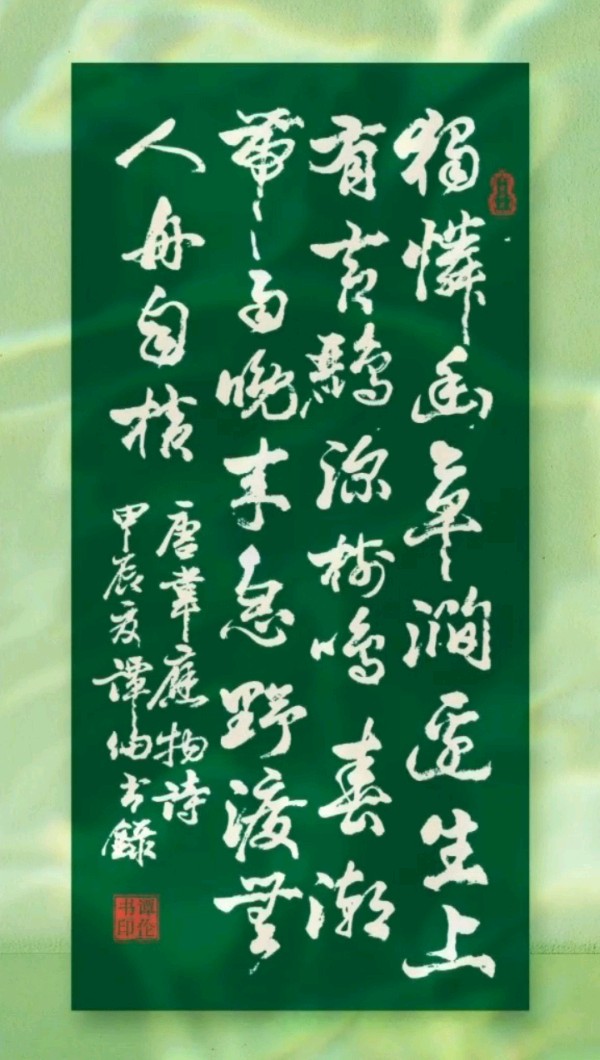 獨憐幽草澗邊生上
有黃鸝深樹鳴春潮
帶雨晚来急野渡無
人舟自横
唐韋應物詩
甲辰夏譚伦书錄
谭伦
书印